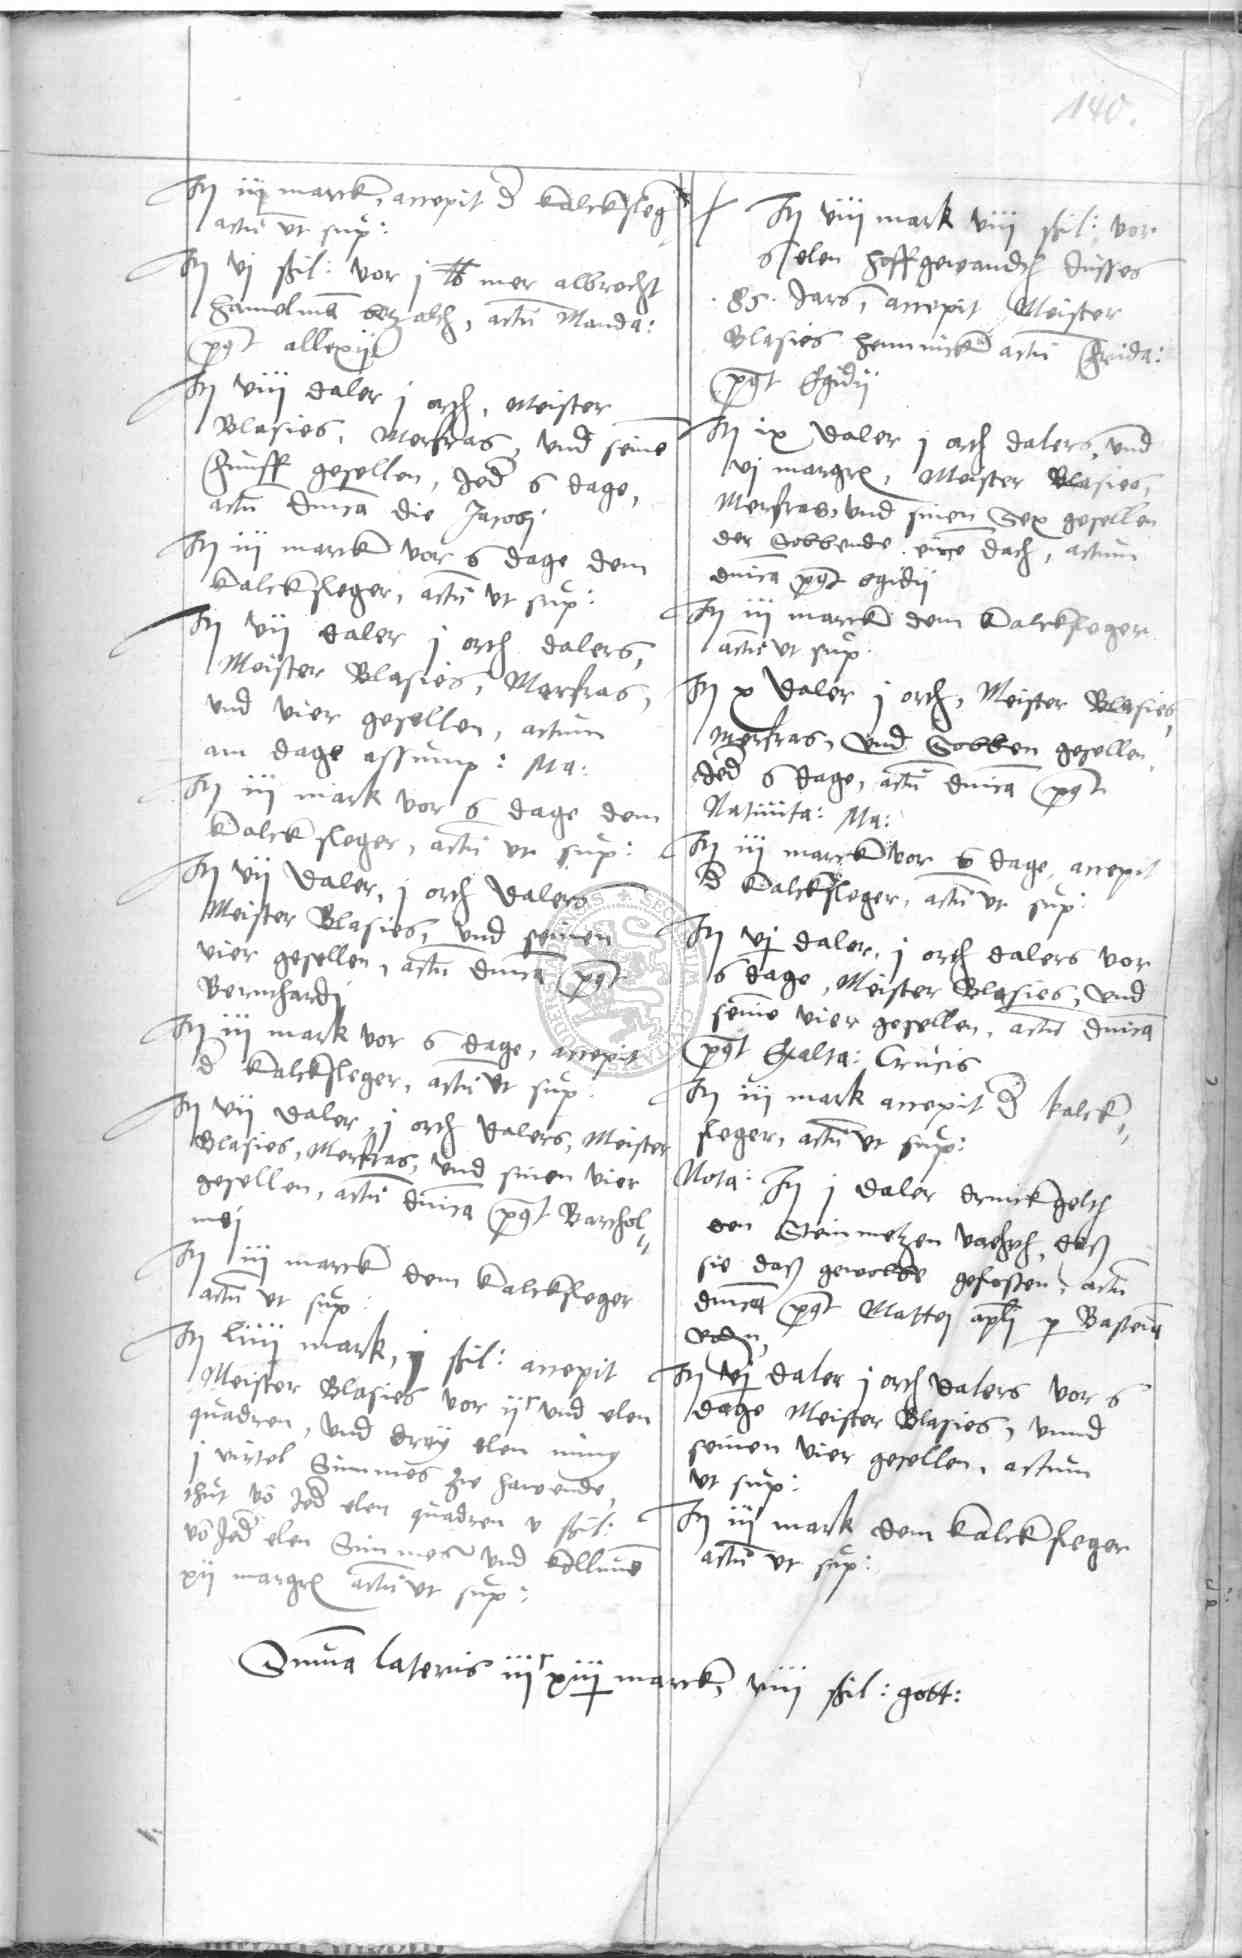 140.
It iij marck, accepit d kalckfleg
actu ut sup:
It vj ßil: vor j ℔ mer albrecht
Hamelma betzalth, actu Manda:
post allexij
It viij daler j orth, Meister
Blasies, Merfras, und seine
funff gesellen, Jed 6 dage,
actu dnica die Jacobj
It iij marck vor 6 dage dem
kalckfleger, actu ut sup:
It vij daler j orth dalers,
Meister Blasies, Merfras,
und vier gesellen, actum
am dage assump: Ma:
It iij mark vor 6 dage dem
kalckfleger, actu ut sup:
It vij daler, j orth dalers
Meister Blasies, und seinen
vier gesellen, actu dnica post
Bernhardj
It iij mark vor 6 dage, accepit
d kalckfleger, actu ut sup:
It vij daler, j orth dalers, Meister
Blasies, Merfras, und sinen vier
gesellen, actu dnica post Barthol„
mej
It iij marck dem kalckfleger
actu ut sup:
It liiij mark, j ßil: accepit
Meister Blasies vor ijc und elen
quadren, und drey elen
j virtel Simmes zue hawende,
thut vo Jed elen quadren v ßil:
vo Jed elen Simmes und
xij margr actu ut sup:
It viij mark viij ßil: vor
6 elen hoffgewandth dusses
.85. Jars, accepit Meister
Blasies Henninck actu Frida:
post Egidij
It ix daler j orth dalers, und
vj margr, Meister Blasies,
Merfras, und sinen Sex gesellen
der Sobbende eine dach, actum
dnica post egidij
It iij marck dem kalckfleger
actu ut sup:
It x daler j orth, Meister Blasies,
Merfras, und Sobben gesellen,
Jed 6 dage, actu dnica post
Natiuita: Ma:
It iij marck vor 6 dage, accepit
d kalckfleger, actu ut sup:
It vj daler, j orth dalers vor
6 dage, Meister Blasies, und
seine vier gesellen, actu dnica
post Exalta: Crucis
It iij mark accepit d kalck„
fleger, actu ut sup:
Nota: It j daler drinckgelth
den Steinmetzen, daß
sie daß gewolbe geslosten, actu
dnica post Mattej apli p Bastian
It vj daler j orth dalers vor 6
dage Meister Blasies, unnd
seinen vier gesellen, actum
ut sup:
It iij mark dem kalckfleger
actu ut sup:
Suma lateris iijc xiij marck, viij ßil: gott: